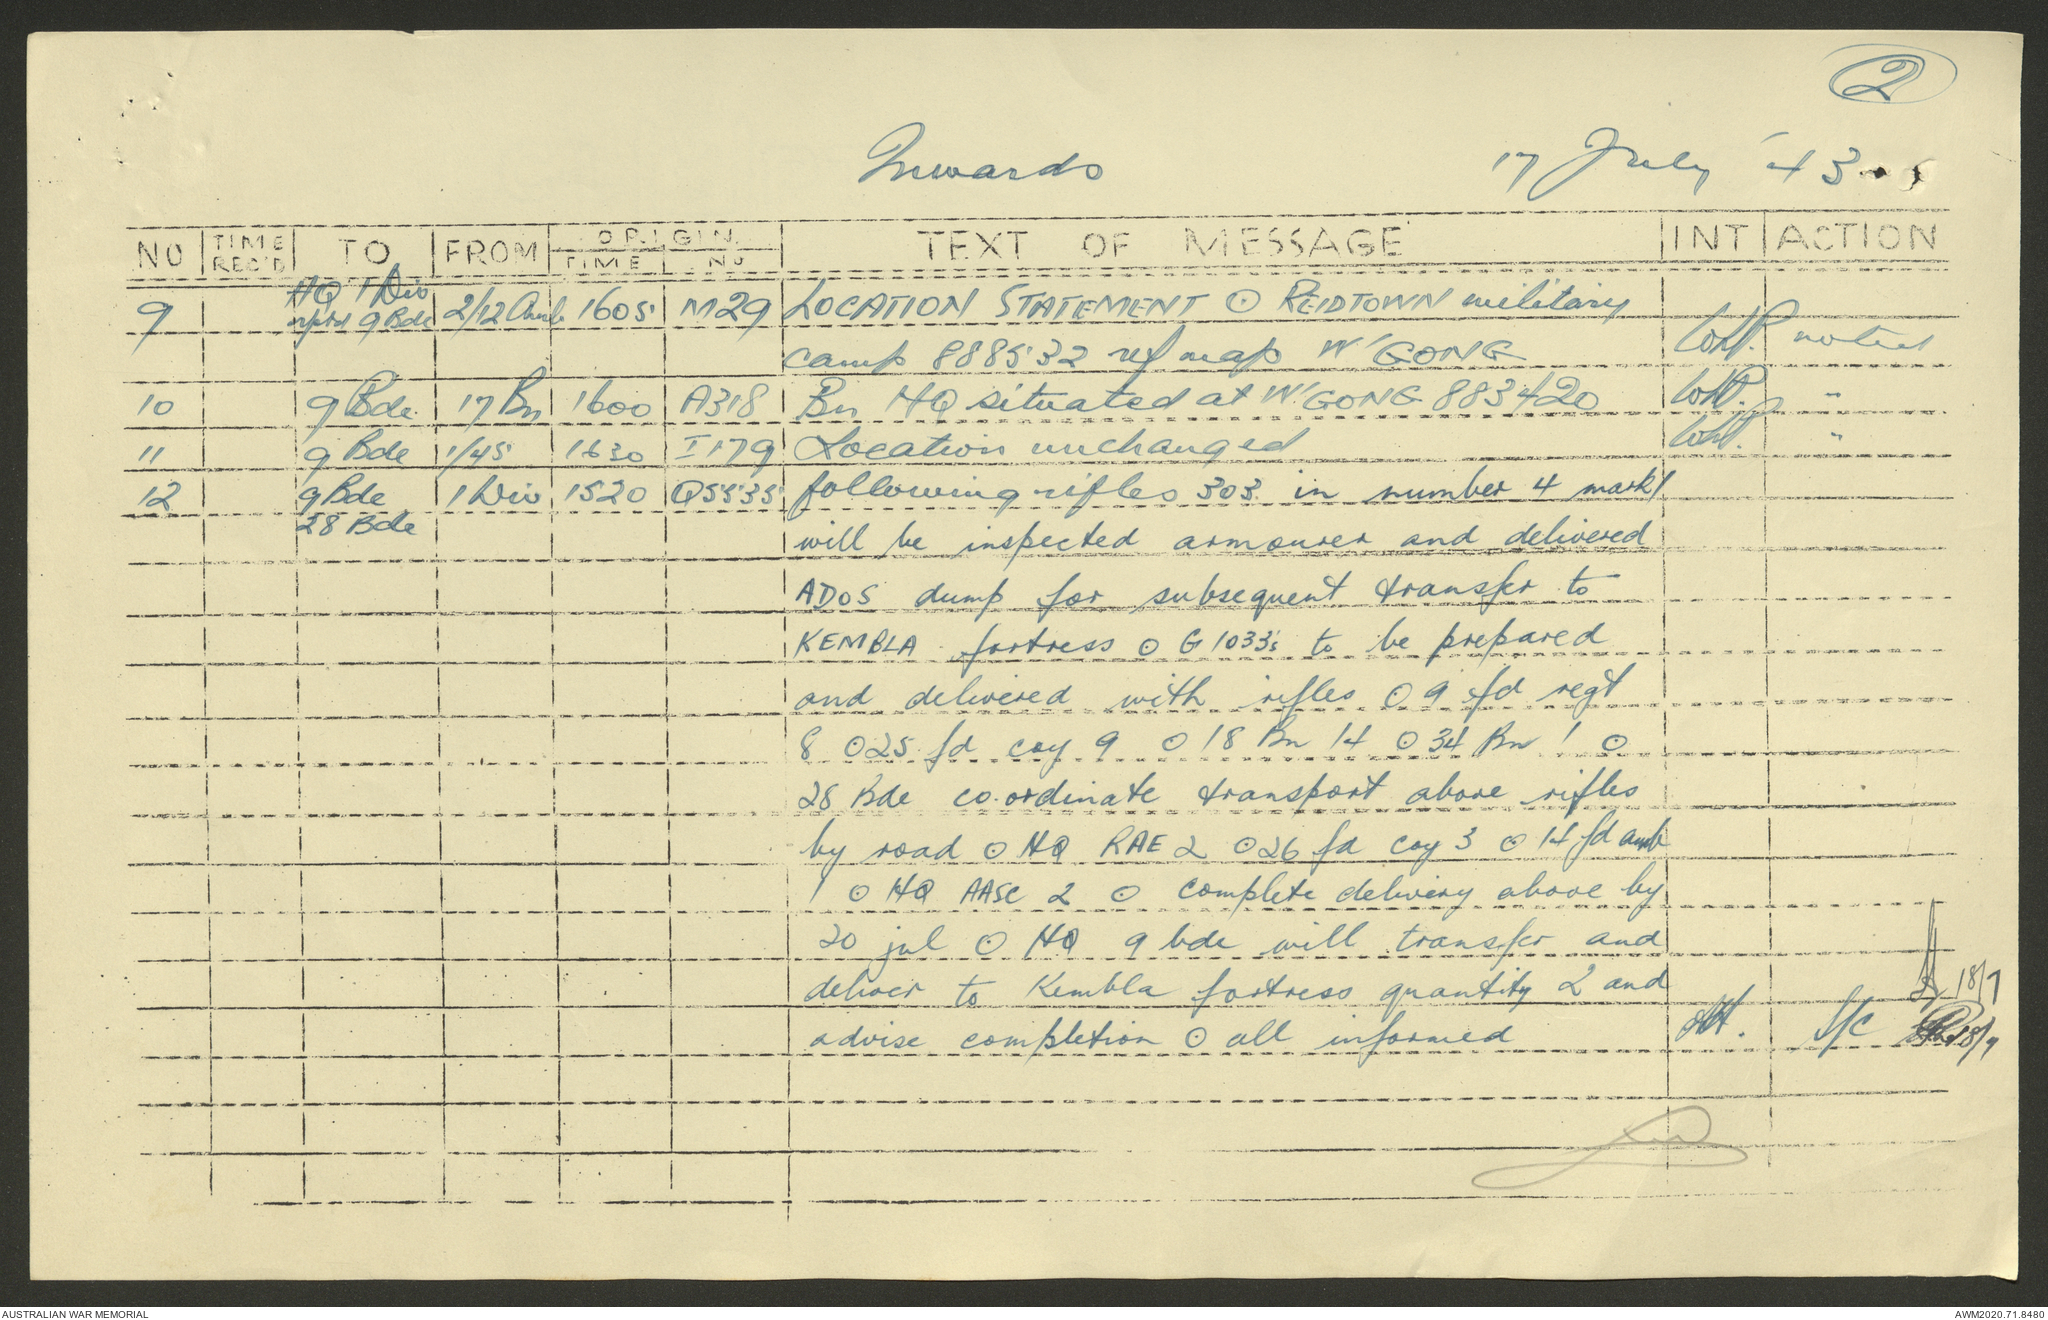 2
Inwards 17 July '43
NO TIME REC'D TO FROM ORIGIN TIME NO TEXT OF MESSAGE INT ACTION
9 HQ 1 Div rptd 9 Bde 2/12 Amb 1605 M29 LOCATION STATEMENT ⊙ REIDTOWN military
camp 888532 ref map W'GONG WHP. noted
10 9 Bde 17 Bn 1600 A318 Bn HQ situated at W'GONG 883420 WHP. "
11 9 Bde 1/45 1630 I179 Location unchanged WHP. "
12 9 Bde 1 Div 1520 Q5535 following rifles 303 in number 4 mark 1
28 Bde will be inspected armourer and delivered
ADOS dump for subsequent transfer to
KEMBLA fortress ⊙ G1033's to be prepared
and delivered with rifles ⊙ 9 fd regt
8 ⊙ 25 fd coy 9 ⊙ 18 Bn 14 ⊙ 34 Bn 1 ⊙
28 Bde co-ordinate transport above rifles
by road ⊙ HQ RAE 2 ⊙ 26 fd coy 3 ⊙ 14 fd amb
1 ⊙ HQ AASC 2 ⊙ complete delivery above by
20 jul ⊙ HQ 9 bde will transfer and
deliver to Kembla fortress quantity 2 and 18/7
advise completion ⊙ all informed S/C 18/7
AUSTRALIAN WAR MEMORIAL AWM2020.71.8480